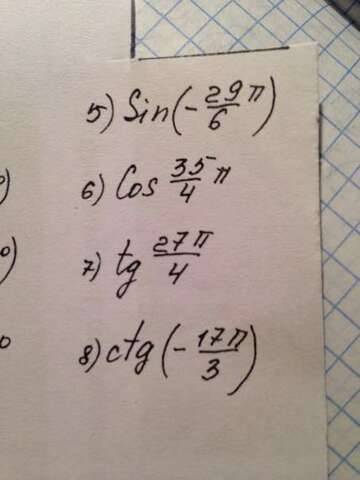 5) Sin(-29/6 π)
6) Cos 35/4 π
7) tg 27π/4
8) ctg(-17π/3)
0)
0)
0